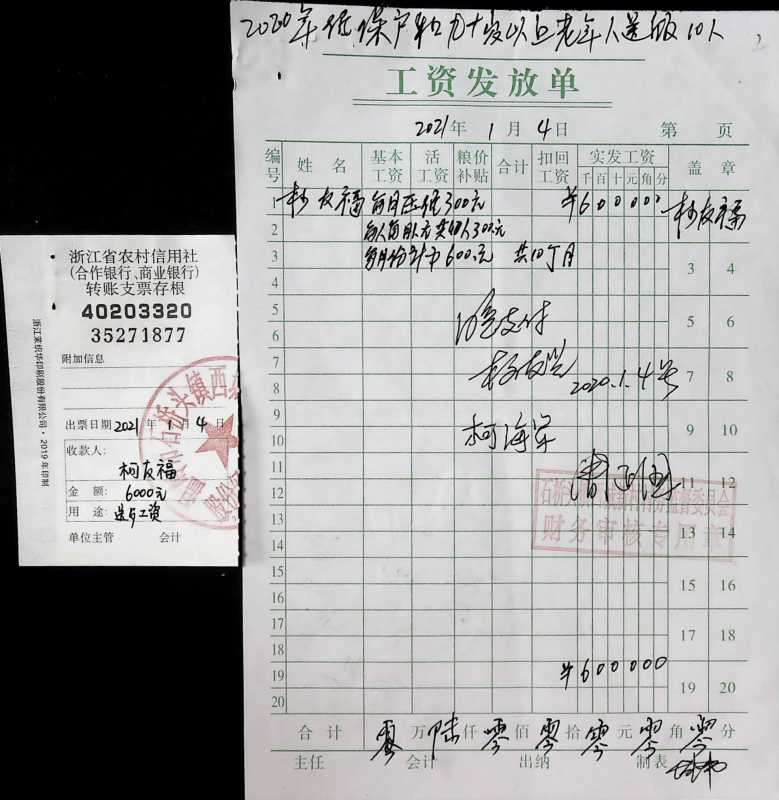 2020年低保户和九十岁以上老年人送饭10人
工资发放单
2021年 1月 4日 第 页
编号 姓名 基本工资 活工资 粮价补贴 合计 扣回工资 实发工资 千百十元角分 盖章
1 柯友福 每月 300元 ¥600000 柯友福
2 每人每月 元共 300元
3 每月份 600元 共10个月 3 4
4
5 同意支付 5 6
6
7 2020.1.4号 7 8
8
9 柯海军 9 10
10
11 11 12
12
13 13 14
14
15 15 16
16
17 17 18
18
19 ¥600000 19 20
20
合计 零万陆仟零佰零拾零元零角零分
主任 会计 出纳 制表
财务审核专用章
浙江省农村信用社
(合作银行、商业银行)
转账支票存根
40203320
35271877
附加信息
出票日期 2021年 1月 4日
收款人:
柯友福
金 额: 6000元
用 途: 工资
单位主管 会计
浙江荣织华印刷股份有限公司·2019年印制